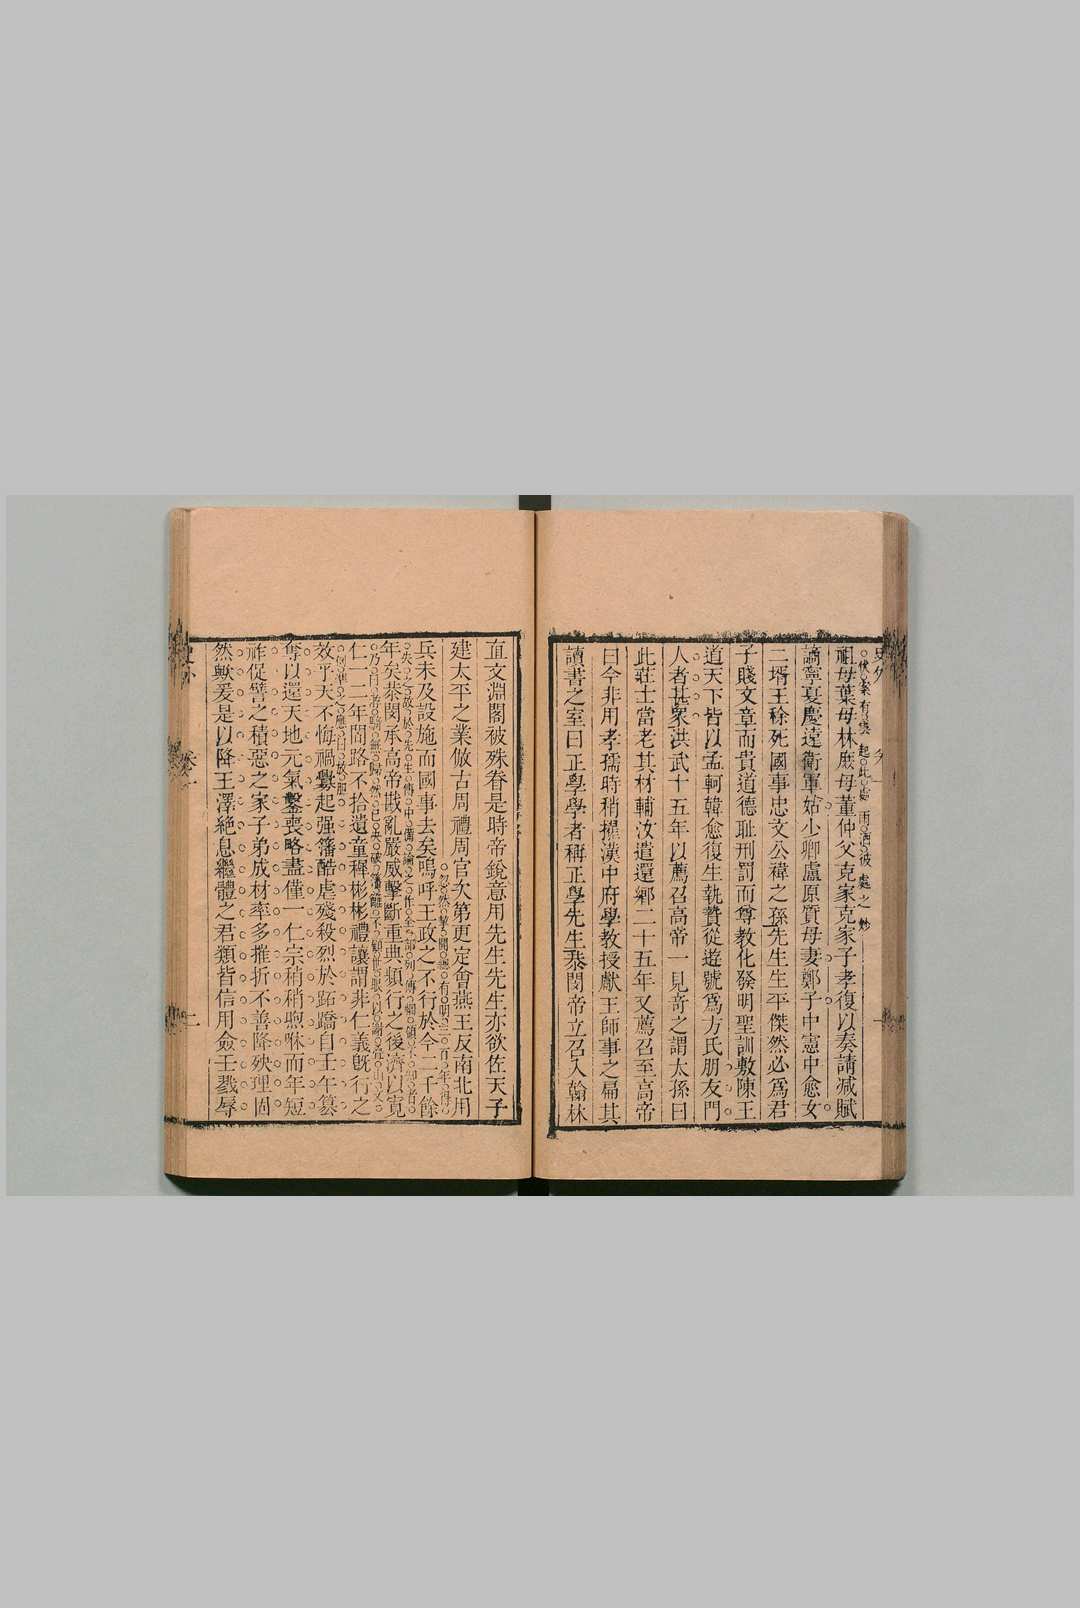 祖母葉母林庶母董仲父克家克家子孝復以奏請減賦
謫寧夏慶遠衛軍姑少卿盧原質母妻鄭子中憲中愈女
二壻王稌死國事忠文公禕之孫先生生平傑然必爲君
子賤文章而貴道德耻刑罰而尊教化發明聖訓敷陳王
道天下皆以孟軻韓愈復生執贄從遊號爲方氏朋友門
人者甚衆洪武十五年以薦召高帝一見竒之謂太孫曰
此莊士當老其材輔汝遣還鄉二十五年又薦召至高帝
曰今非用孝孺時稍擢漢中府學教授獻王師事之扁其
讀書之室曰正學學者稱正學先生㳟閔帝立召入翰林
直文淵閣被殊眷是時帝銳意用先生先生亦欲佐天子
建太平之業倣古周禮周官次第更定會燕王反南北用
兵未及設施而國事去矣嗚呼王政之不行於今二千餘
年矣㳟閔承高帝戡亂嚴威擊斷重典頻行之後濟以寬
仁一二年間路不拾遺童稺彬彬禮讓謂非仁義旣行之
效乎天不悔禍釁起强籓酷虐殘殺烈於跖蹻自壬午篡
奪以還天地元氣鑿喪略盡僅一仁宗稍稍喣咻而年短
祚促譬之積惡之家子弟成材率多摧折不善降殃理固
然歟爰是以降王澤絶息繼體之君類皆信用僉壬戮辱